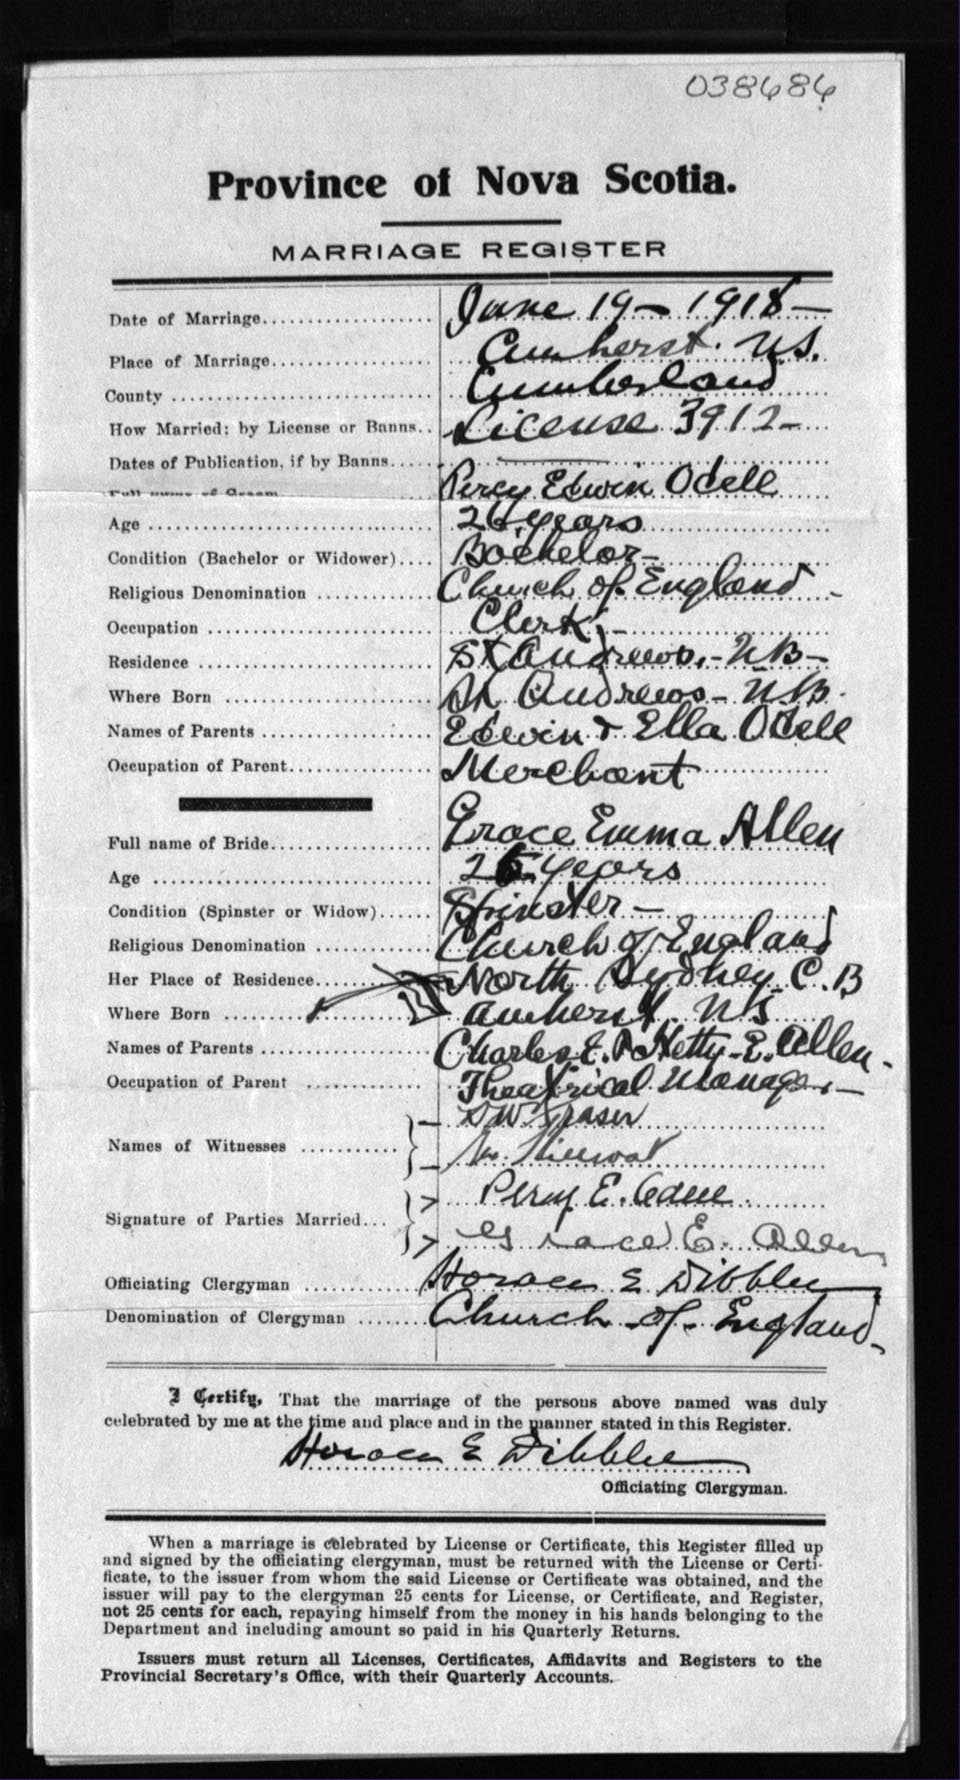 038686
Province of Nova Scotia.
MARRIAGE REGISTER
Date of Marriage................... June 19 - 1918 -
Place of Marriage.................. Amherst. N.S.
County .................. Cumberland
How Married; by License or Banns.. License 3912 -
Dates of Publication, if by Banns....
Full name of Groom Percy Edwin Odell
Age .................. years
Condition (Bachelor or Widower).... Bachelor -
Religious Denomination ............ Church of England -
Occupation .................. Clerk -
Residence .................. St Andrews. - NB -
Where Born .................. St Andrews - N.B.
Names of Parents .................. Edwin & Ella Odell
Occupation of Parent............... Merchant
Full name of Bride................. Grace Emma Allen
Age .................. 25 years
Condition (Spinster or Widow)...... Spinster -
Religious Denomination ............ Church of England
Her Place of Residence............. North Sydney C.B
Where Born .................. Amherst. NS
Names of Parents .................. Charles E. & Hetty E. Allen -
Occupation of Parent .............. Theatrical Manager -
Names of Witnesses ........... DW Fraser
Signature of Parties Married... Percy E. Odell
Grace E. Allen
Officiating Clergyman ............. Horace E Dibblee
Denomination of Clergyman ....... Church of England -
I Certify, That the marriage of the persons above named was duly
celebrated by me at the time and place and in the manner stated in this Register.
Horace E Dibblee
Officiating Clergyman.
When a marriage is celebrated by License or Certificate, this Register filled up
and signed by the officiating clergyman, must be returned with the License or Certi-
ficate, to the issuer from whom the said License or Certificate was obtained, and the
issuer will pay to the clergyman 25 cents for License, or Certificate, and Register,
not 25 cents for each, repaying himself from the money in his hands belonging to the
Department and including amount so paid in his Quarterly Returns.
Issuers must return all Licenses, Certificates, Affidavits and Registers to the
Provincial Secretary's Office, with their Quarterly Accounts.